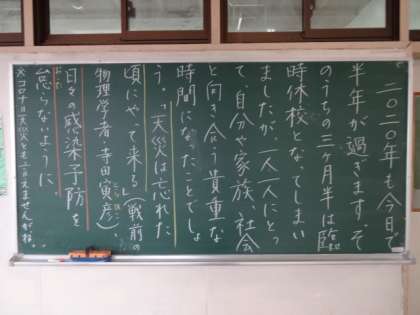 二〇二〇年も今日で
半年が過ぎます。そ
のうちの三ヶ月半は臨
時休校となってしまい
ましたが、一人一人にとっ
て、自分や家族、社会
と向き合う貴重な
時間になったことでしょ
う。「天災は忘れた
頃にやって来る」(戦前の
物理学者・寺田寅彦)、
とらひこ
日々の感染予防を
怠らないように。
おこた
※コロナは天災とも言えませんが